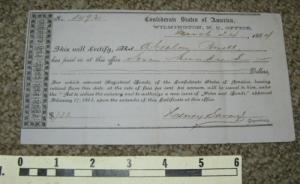 Confederate States of America,
WILMINGTON, N. C. OFFICE,
March 1864
This will Certify, That Absalom
has paid in at this office Seven Hundred
Dollars,
For which amount Registered Bonds, of the Confederate States of America, bearing
interest from this date, at the rate of four per cent per annum, will be issued to him, under
the "Act to reduce the currency and to authorize a new issue of Notes and Bonds," approved
February 17, 1864, upon the surrender of this Certificate at this office.
$700
Depositary.
1 2 3 4 5 6